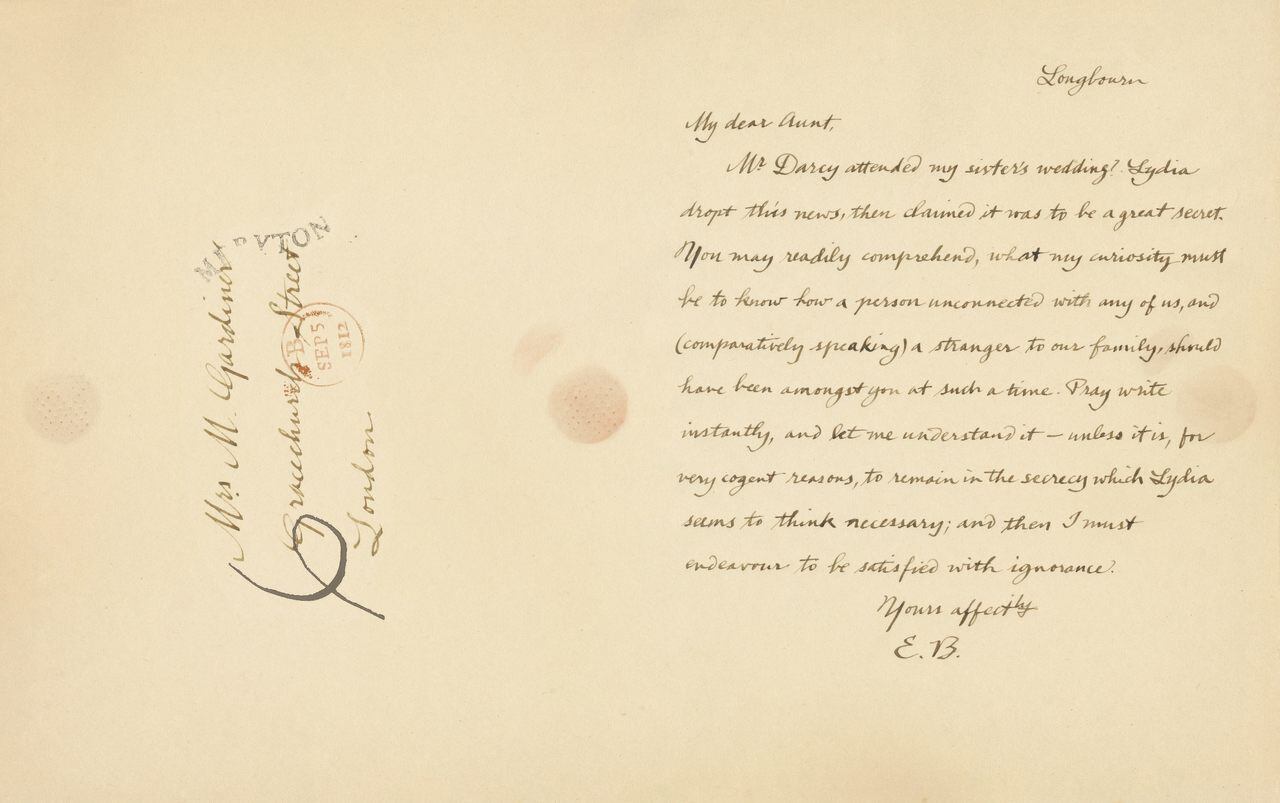 Mrs M. Gardiner
Gracechurch Street
London
MERYTON
B
SEP 5
1812
Longbourn
My dear Aunt,
Mr Darcy attended my sister's wedding? Lydia
dropt this news, then claimed it was to be a great secret.
You may readily comprehend, what my curiosity must
be to know how a person unconnected with any of us, and
(comparatively speaking) a stranger to our family, should
have been amongst you at such a time. Pray write
instantly, and let me understand it – unless it is, for
very cogent reasons, to remain in the secrecy which Lydia
seems to think necessary; and then I must
endeavour to be satisfied with ignorance.
Yours affectly
E. B.